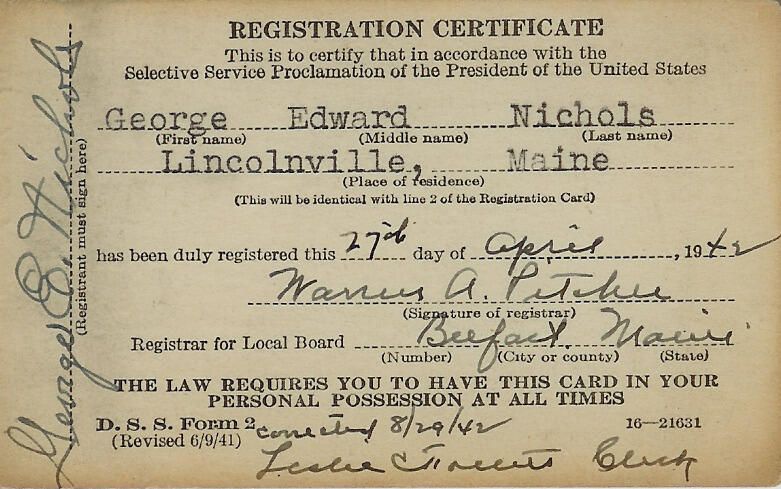 REGISTRATION CERTIFICATE
This is to certify that in accordance with the
Selective Service Proclamation of the President of the United States
George Edward Nichols
(First name) (Middle name) (Last name)
Lincolnville, Maine
(Place of residence)
(This will be identical with line 2 of the Registration Card)
has been duly registered this 27th day of April, 1942
Warren A. Pitcher
(Signature of registrar)
Registrar for Local Board Belfast, Maine
(Number) (City or county) (State)
THE LAW REQUIRES YOU TO HAVE THIS CARD IN YOUR
PERSONAL POSSESSION AT ALL TIMES
D. S. S. Form 2 corrected 8/29/42 16—21631
(Revised 6/9/41)
Leslie Clerk
George E. Nichols
(Registrant must sign here)